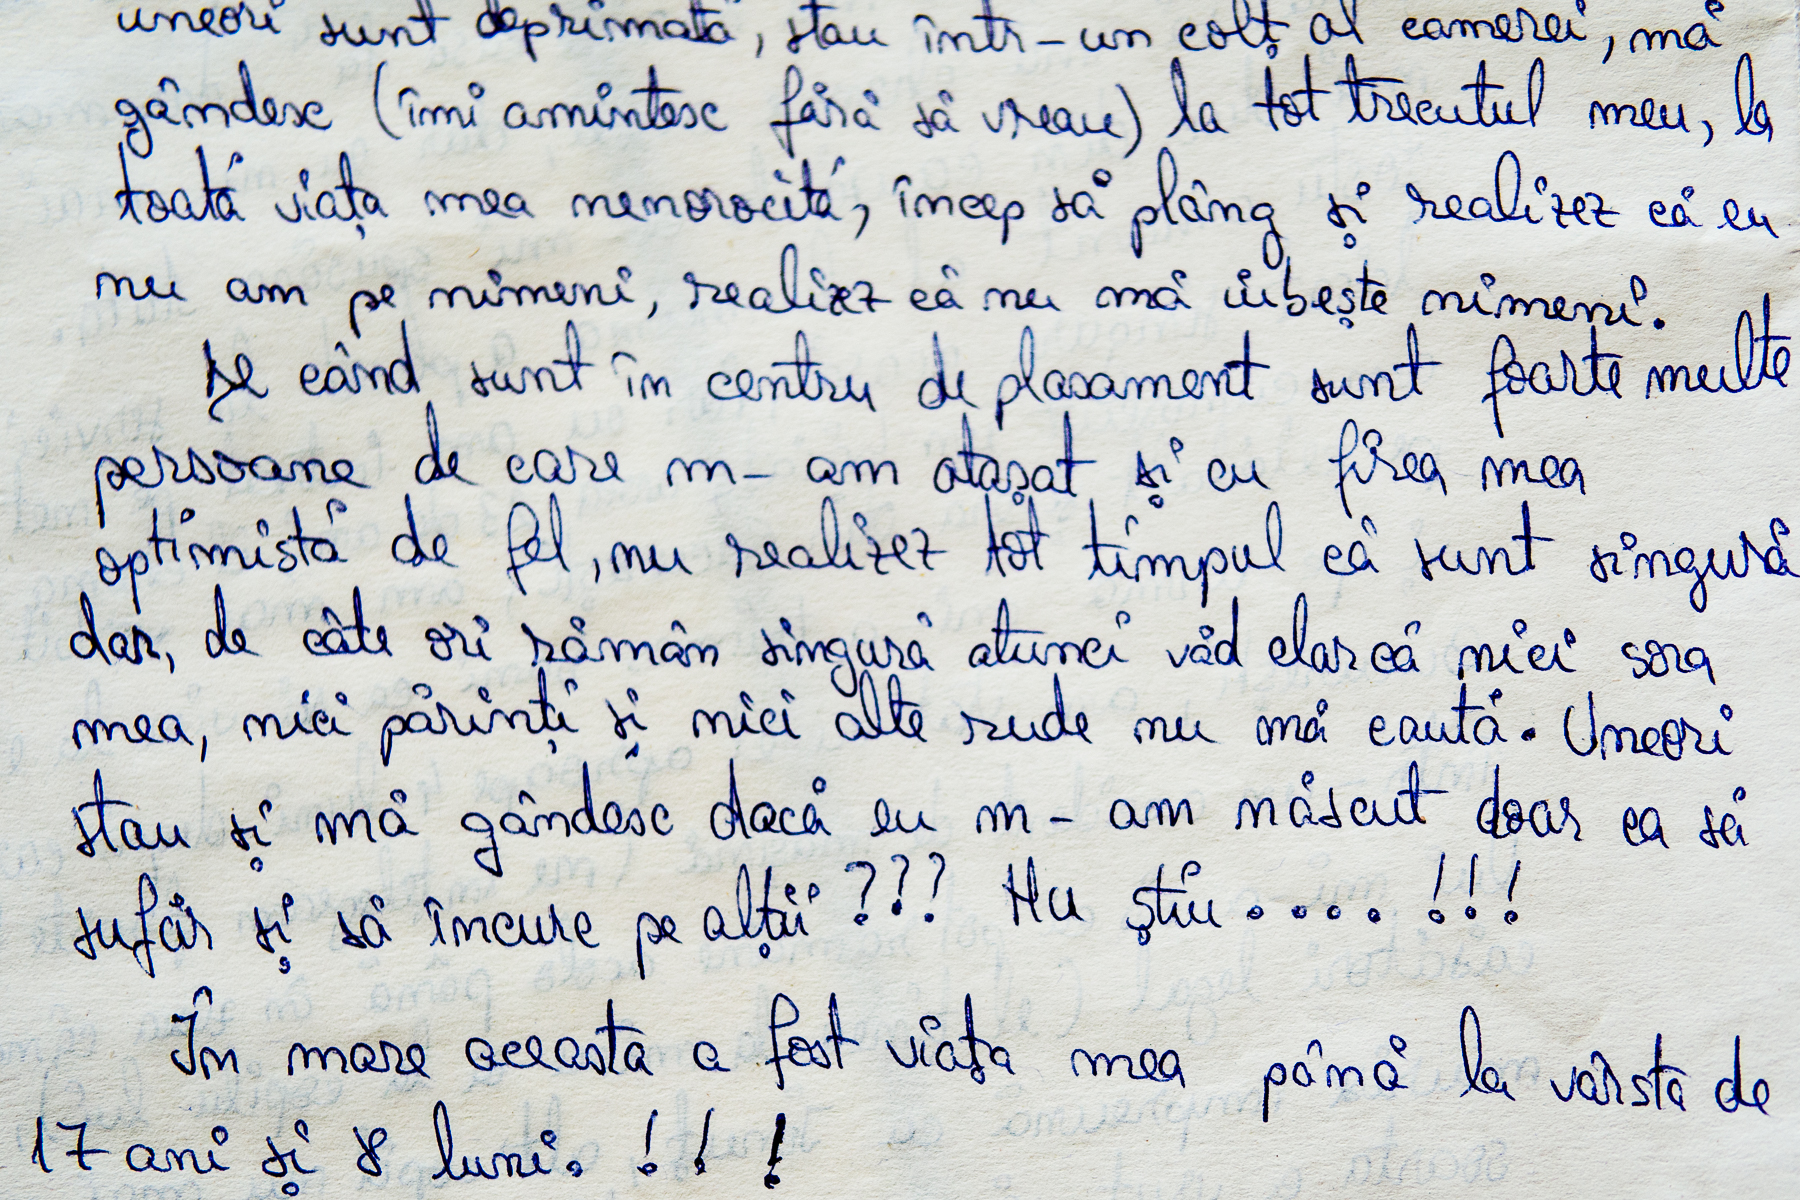 uneori sunt deprimată, stau într-un colț al camerei, mă
gândesc (îmi amintesc fără să vreau) la tot trecutul meu, la
toată viața mea nenorocită, încep să plâng și realizez că eu
nu am pe nimeni, realizez că nu mă iubește nimeni.
De când sunt în centru de plasament sunt foarte multe
persoane de care m-am atașat și cu firea mea
optimistă de fel, nu realizez tot timpul că sunt singură
dar, de câte ori rămân singură atunci văd clar că nici sora
mea, nici părinți și nici alte rude nu mă caută. Uneori
stau și mă gândesc dacă eu m-am născut doar ca să
sufăr și să încurc pe alții ??? Nu știu .... !!!
În mare aceasta a fost viața mea până la vârsta de
17 ani și 8 luni. !!!